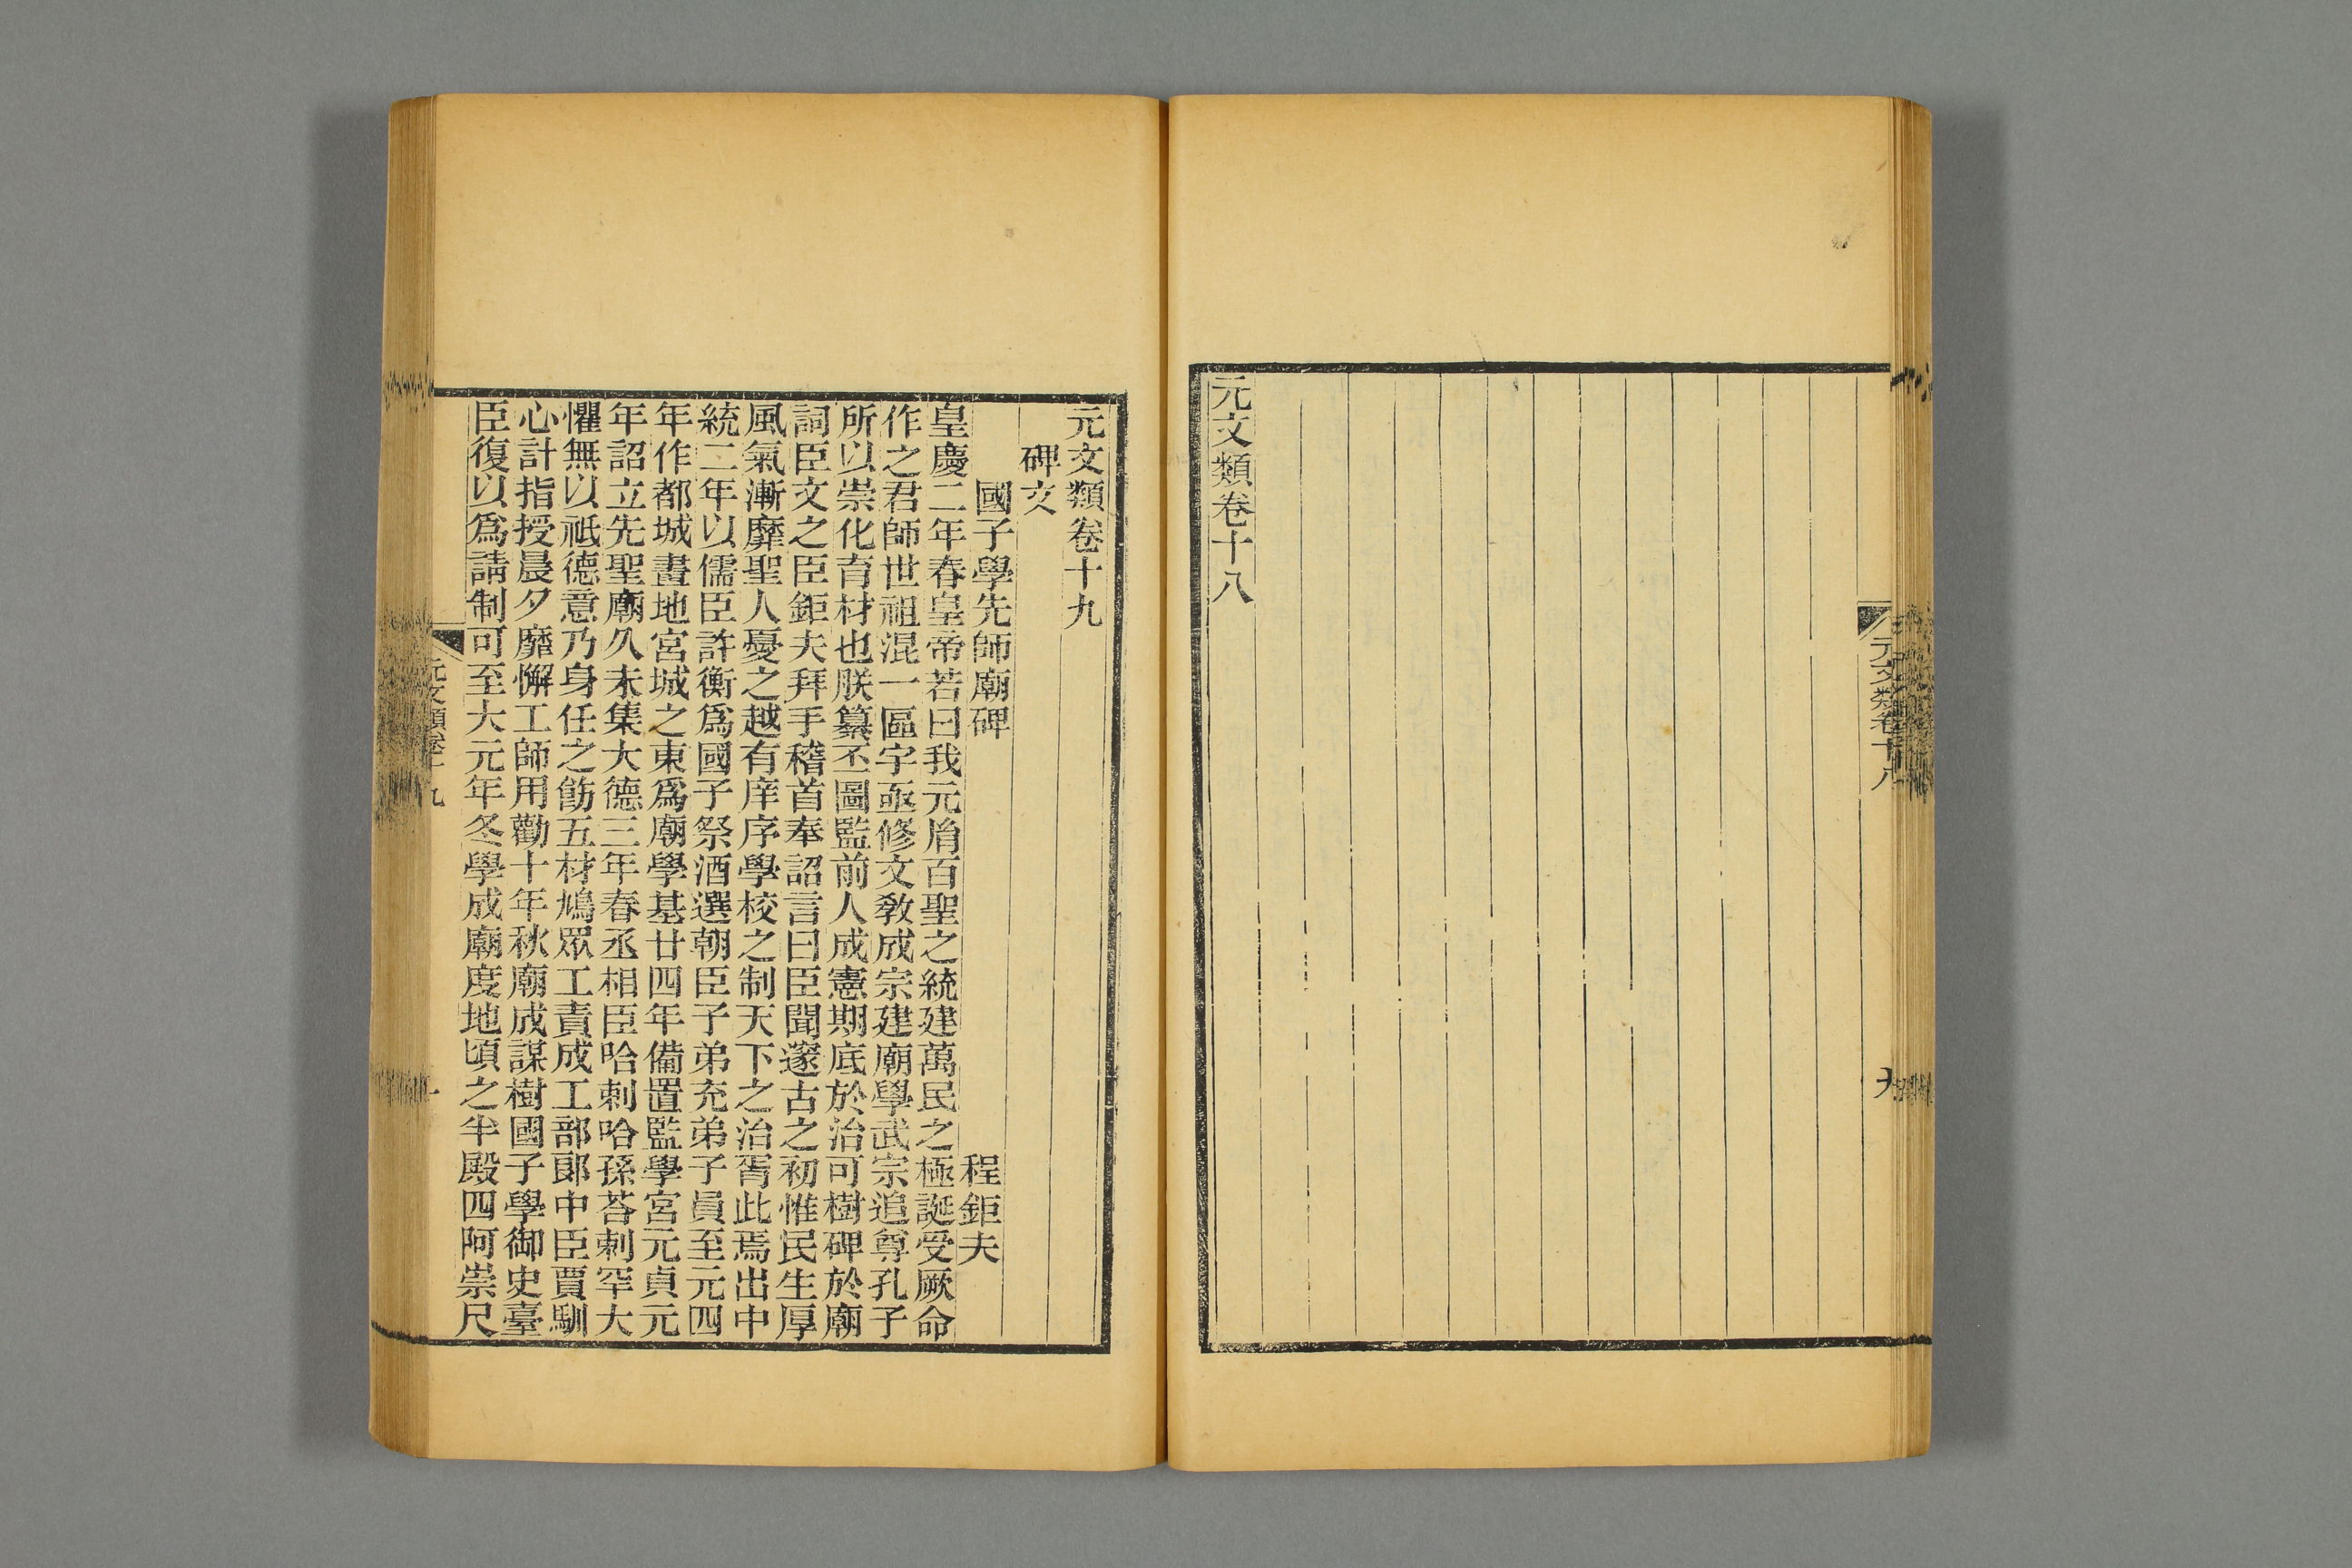 元文類卷十八
九
元文類卷十八
元文類卷十九
碑文
國子學先師廟碑
程鉅夫
皇慶二年春皇帝若曰我元胤百聖之統建萬民之極誕受厥命
作之君師世祖混一區宇亟修文敎成宗建廟學武宗追尊孔子
所以崇化育材也朕纂丕圖監前人成憲期底於治可樹碑於廟
詞臣文之臣鉅夫拜手稽首奉詔言曰臣聞邃古之初惟民生厚
風氣漸靡聖人憂之越有庠序學校之制天下之治胥此焉出中
統二年以儒臣許衡爲國子祭酒選朝臣子弟充弟子員至元四
年作都城畫地宮城之東爲廟學基廿四年備置監學宮元貞元
年詔立先聖廟久未集大德三年春丞相臣哈剌哈孫荅剌罕大
懼無以祇德意乃身任之飭五材鳩眾工責成工部郎中臣賈馴
心計指授晨夕靡懈工師用勸十年秋廟成謀樹國子學御史臺
臣復以爲請制可至大元年冬學成廟度地頃之半殿四阿崇尺
元文類卷十九
一